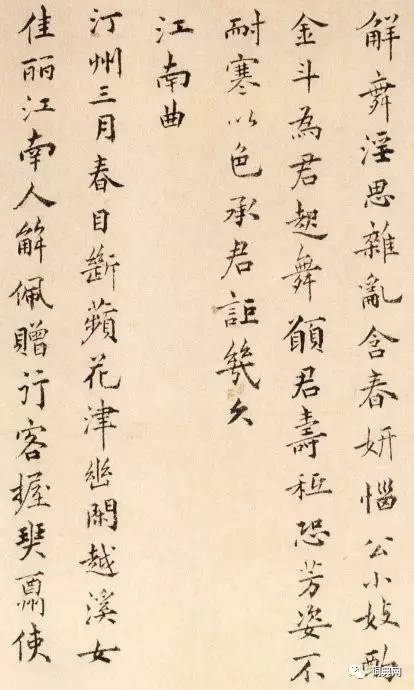 解舞淫思雜亂含春妍惱公小妓酌
金斗為君起舞願君壽秖恐芳姿不
耐寒以色承君詎幾久
江南曲
汀州三月春目斷蘋花津幽閑越溪女
佳丽江南人解佩贈行客握使